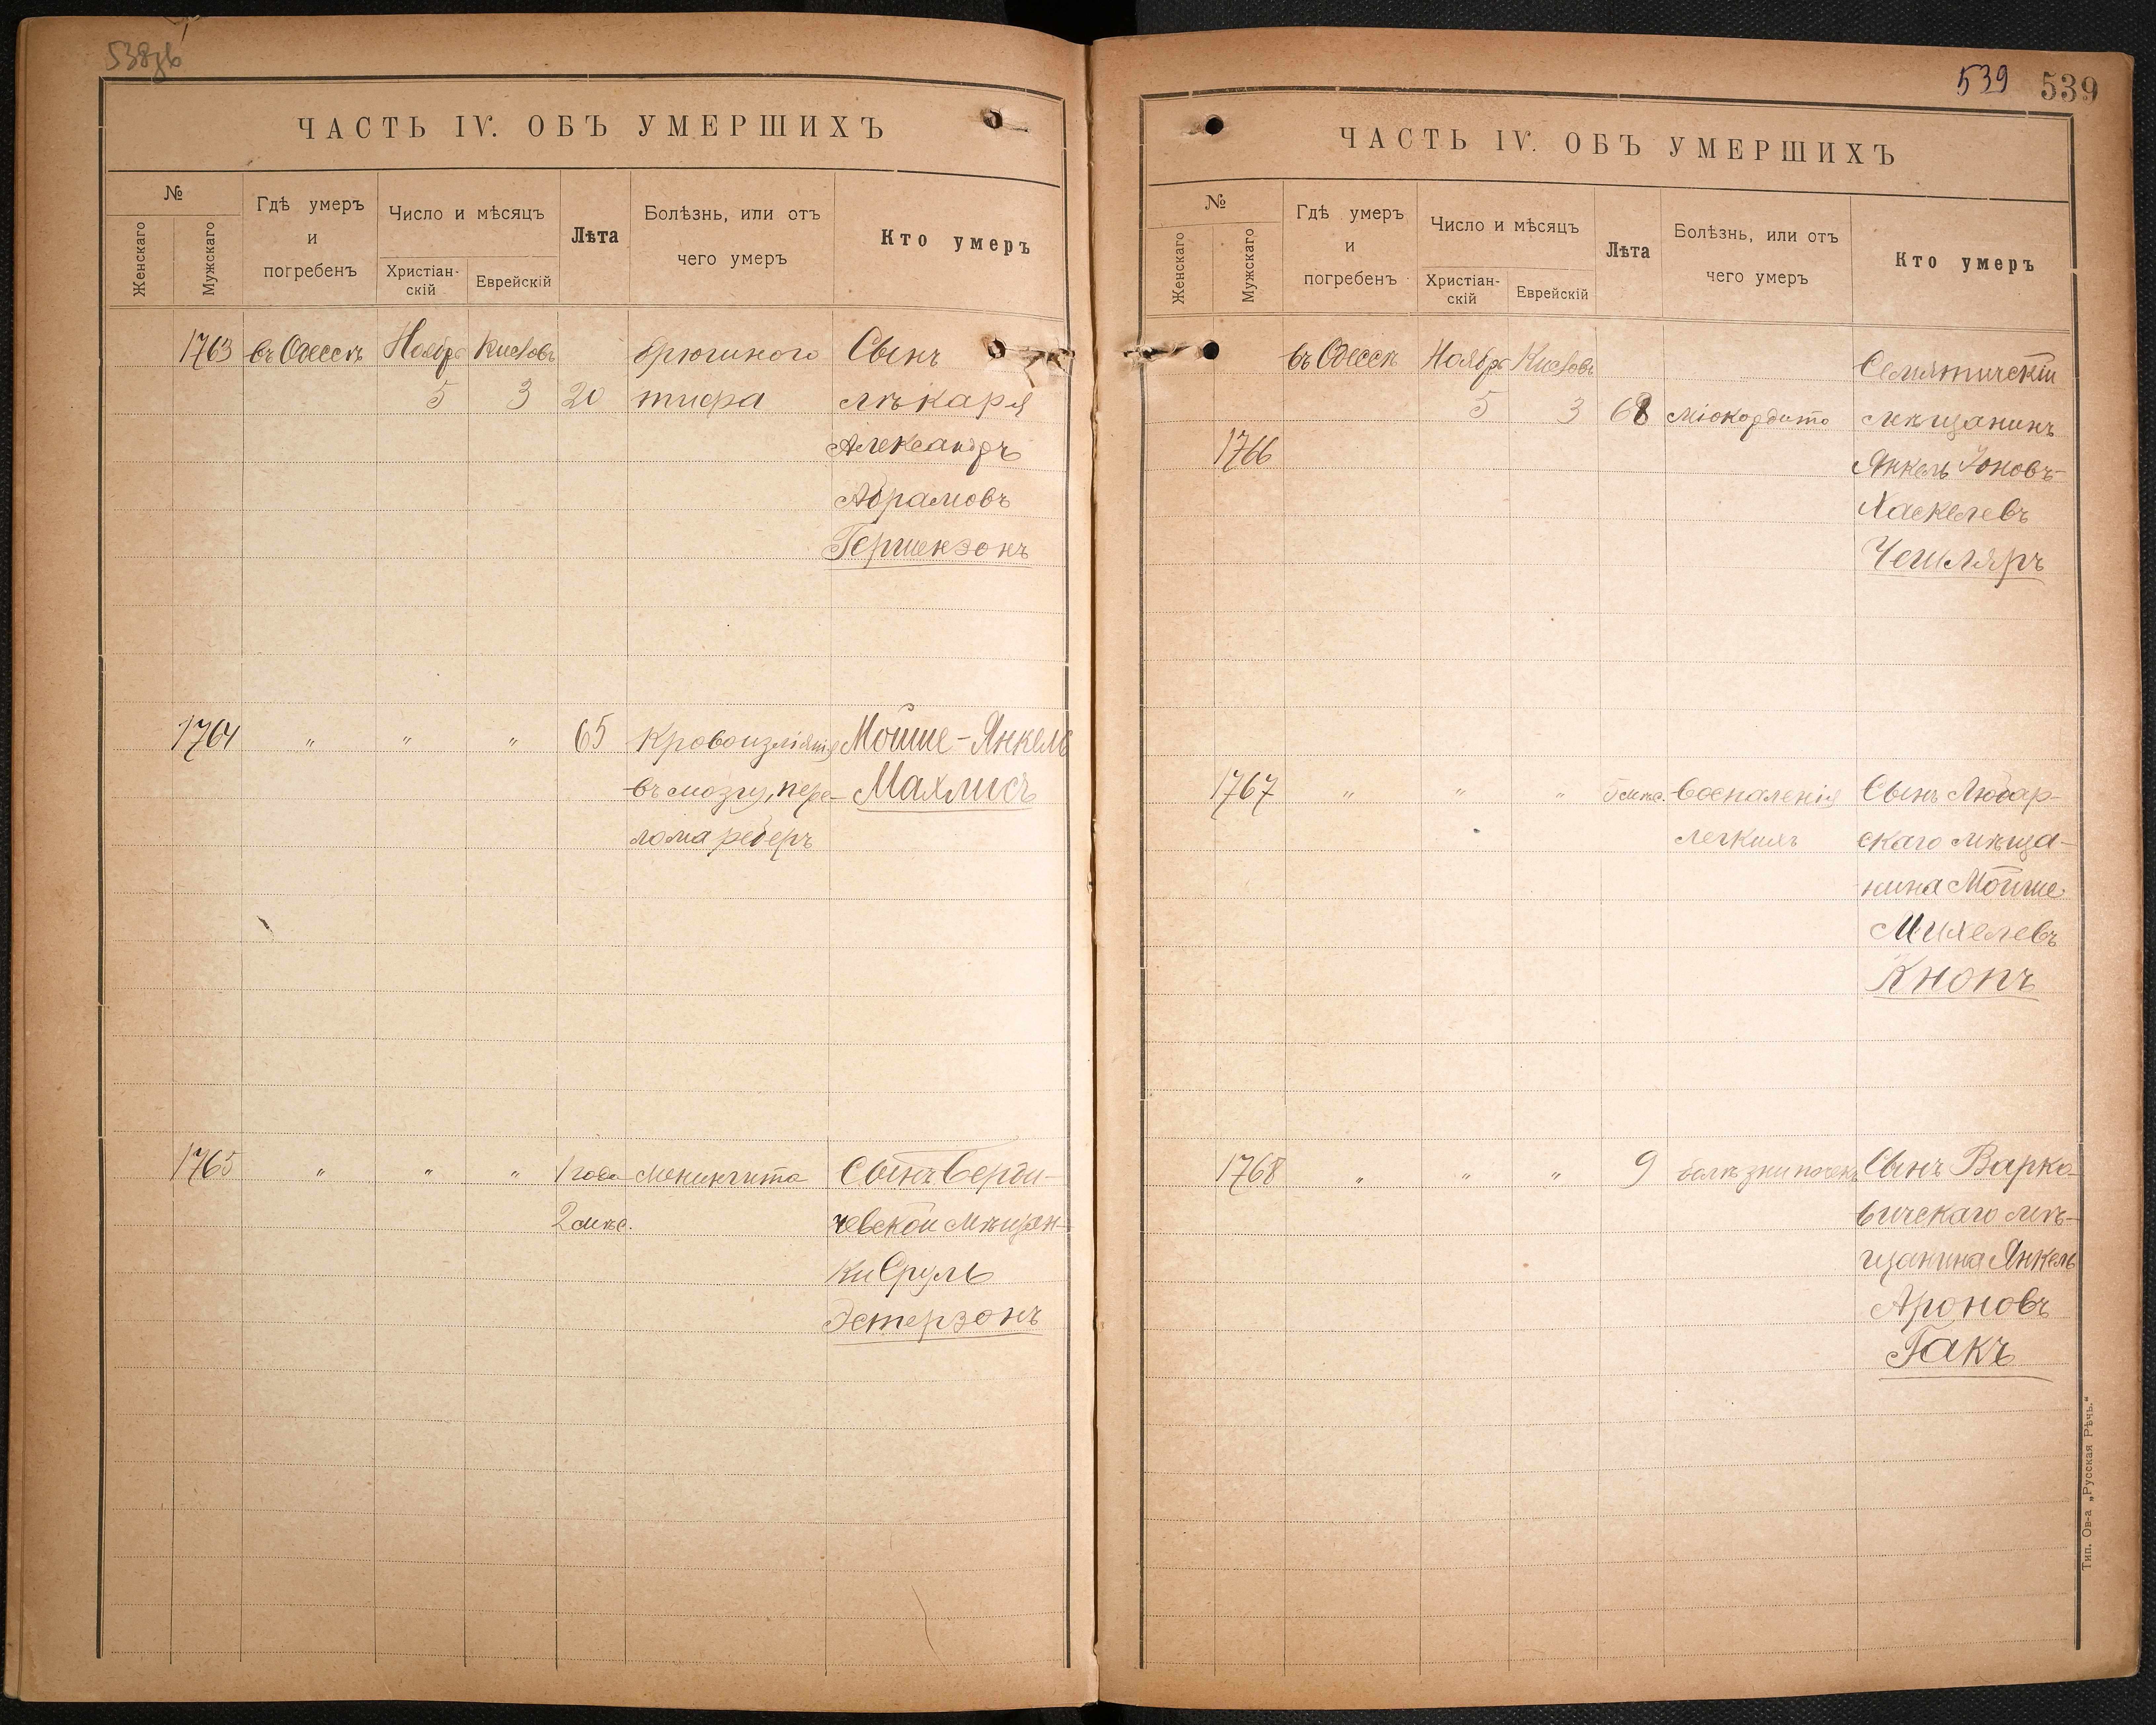 538зв
ЧАСТЬ IV. ОБЪ УМЕРШИХЪ
№
Женскаго
Мужскаго
Гдѣ умеръ
и
погребенъ
Число и мѣсяцъ
Христіан-
скій
Еврейскій
Лѣта
Болѣзнь, или отъ
чего умеръ
Кто умеръ
1763 въ Одессѣ Ноябрь Кислевъ брюшного Сынъ
5 3 20 тифа лѣкаря
Александръ
Абрамовъ
Гершензонъ
1764 " " " 65 Кровоизліянія Мойше-Янкель
въ мозгу, пере- Махлисъ
лома реберъ
1765 " " " 1 года менингита Сынъ Берди-
2 мѣс. чевской мѣщан-
ки Сруль
Эстерзонъ
539 539
ЧАСТЬ IV. ОБЪ УМЕРШИХЪ
№
Женскаго
Мужскаго
Гдѣ умеръ
и
погребенъ
Число и мѣсяцъ
Христіан-
скій
Еврейскій
Лѣта
Болѣзнь, или отъ
чего умеръ
Кто умеръ
въ Одессѣ Ноябрь Кислевъ Семятичскій
5 3 68 міокардита мѣщанинъ
1766 Янкель Іоновъ-
Хаскелевъ
Чешляръ
1767 " " " 5 мѣс. воспаленія Сынъ Любар-
легкихъ скаго мѣща-
нина Мойше
Михелевъ
Кнопъ
1768 " " " 9 болѣзни почекъ Сынъ Варко-
вичскаго мѣ-
щанина Янкель
Ароновъ
Гакъ
Тип. Ов-а „Русская Рѣчь."